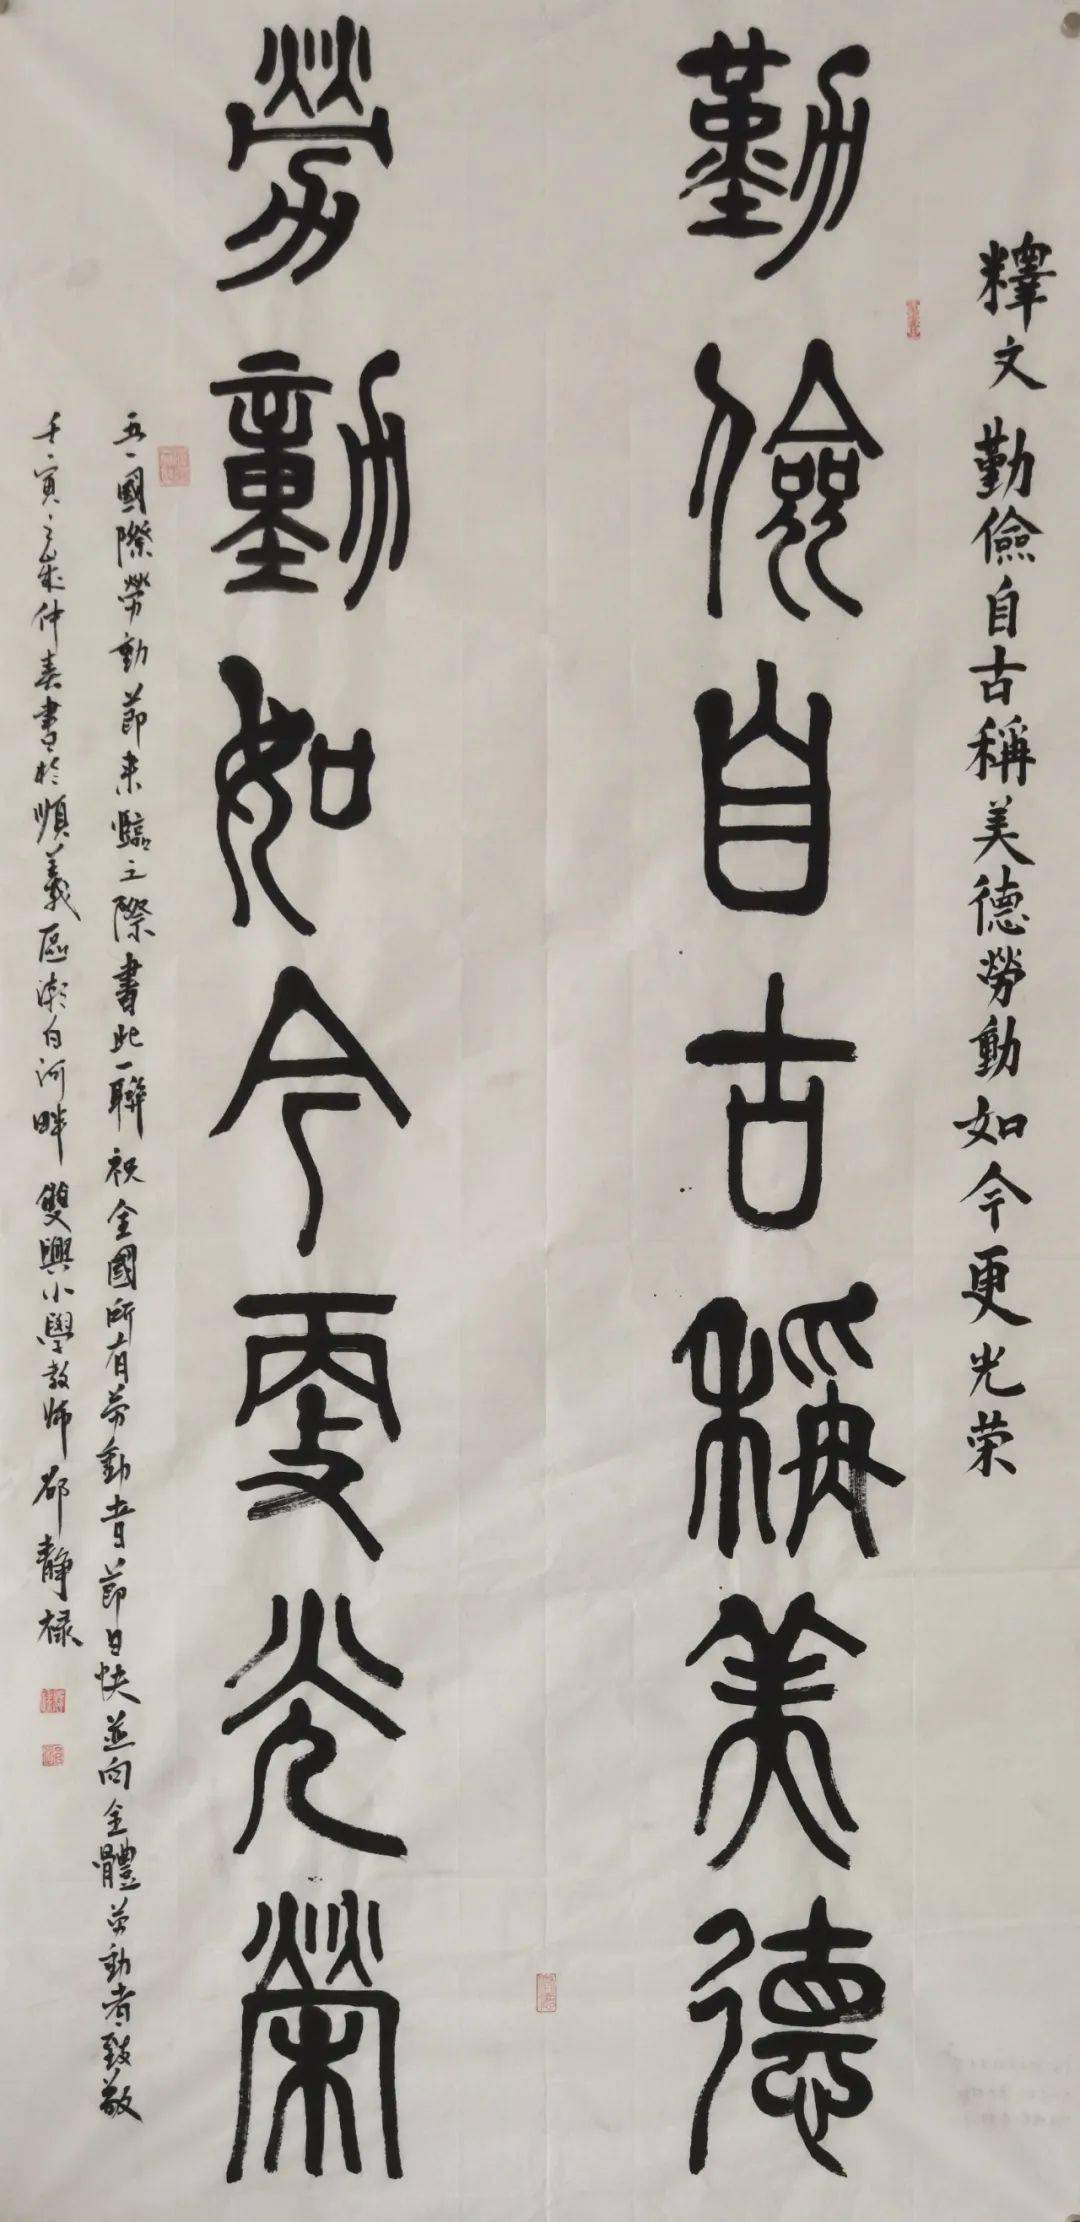 釋文 勤儉自古稱美德勞動如今更光荣
勤儉自古稱美德
勞動如今更光榮
五一國際勞動節來臨之際書此一聯祝全國所有劳動者節日快並向全體劳動者致敬
壬寅之歲仲春書於順義區潮白河畔 雙興小學教師 邵靜禄